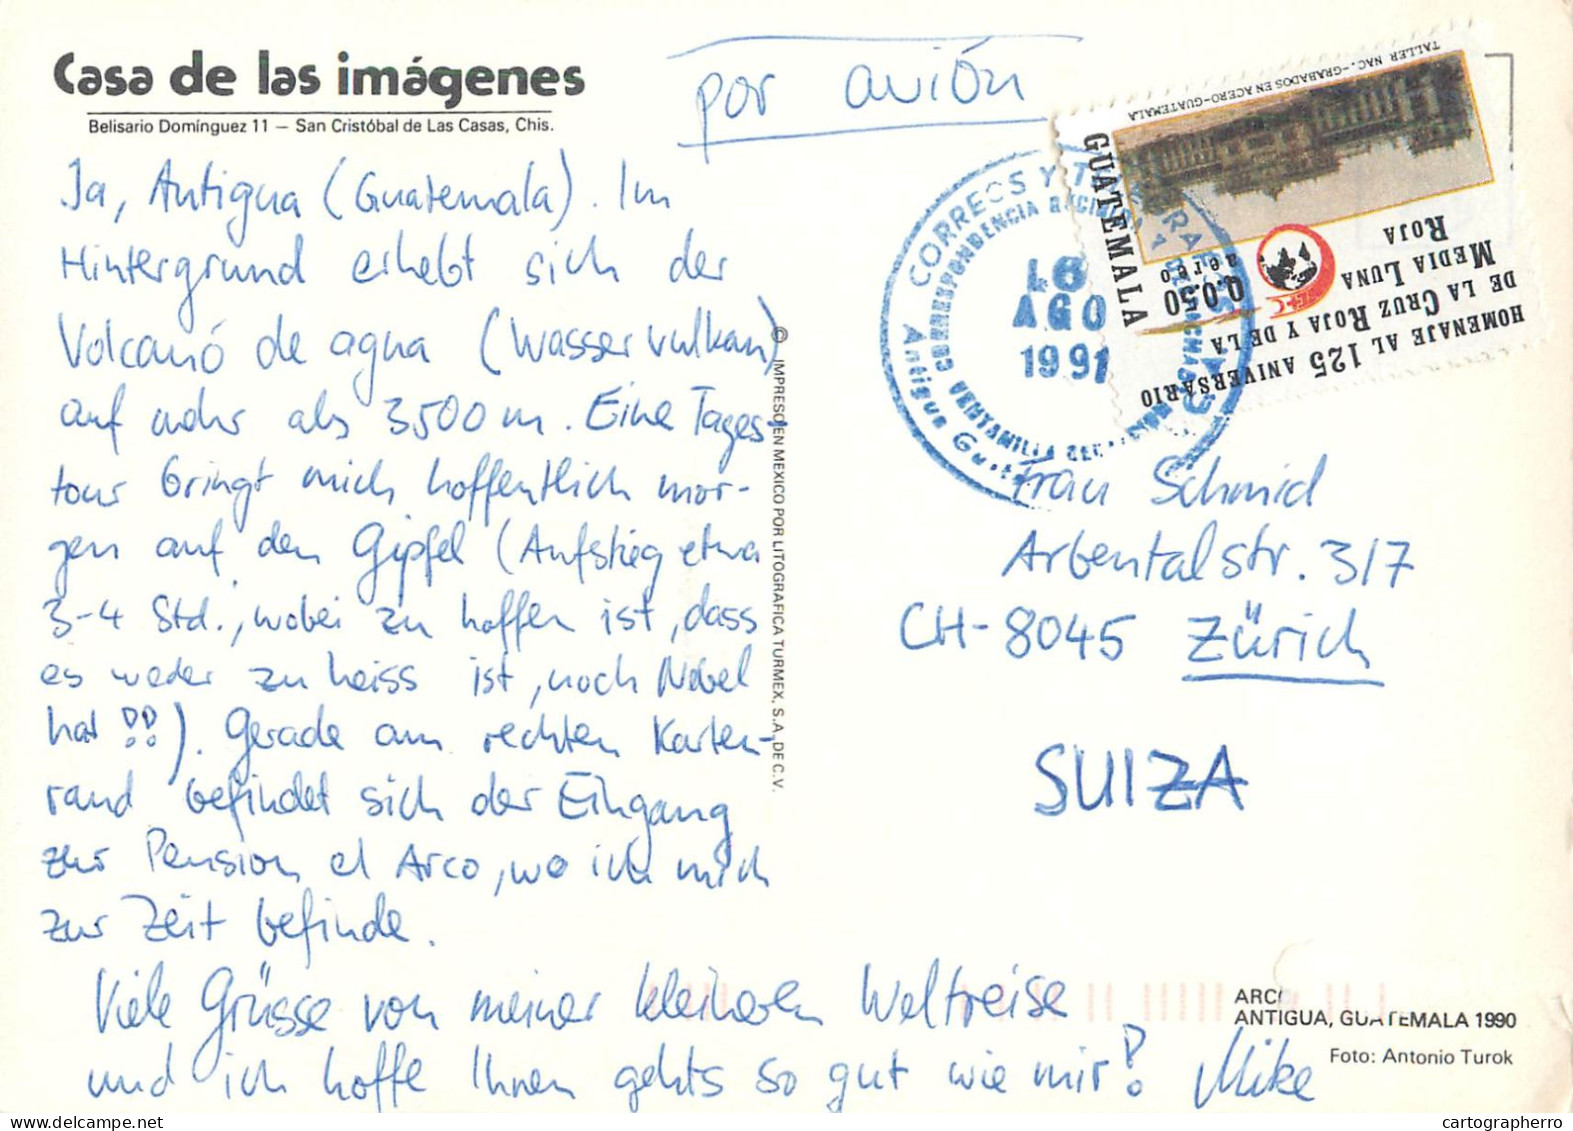 Casa de las imágenes
Belisario Domínguez 11 — San Cristóbal de Las Casas, Chis.
por avión
Ja, Antigua (Guatemala). Im
Hintergrund erhebt sich der
Volcanó de agua (Wasservulkan)
auf mehr als 3500 m. Eine Tages-
tour bringt mich hoffentlich mor-
gen auf den Gipfel (Aufstieg etwa
3-4 Std., wobei zu hoffen ist, dass
es weder zu heiss ist, noch Nebel
hat!!). Gerade am rechten Karten-
rand befindet sich der Eingang
zur Pension el Arco, wo ich mich
zur Zeit befinde.
Viele Grüsse von meiner kleineren Weltreise
und ich hoffe Ihnen gehts so gut wie mir! Mike
© IMPRESO EN MEXICO POR LITOGRAFICA TURMEX, S.A. DE C.V.
TALLER NAC.-GRABADOS EN ACERO-GUATEMALA
GUATEMALA
Q0.50
aereo
HOMENAJE AL 125 ANIVERSARIO
DE LA CRUZ ROJA Y DE LA
MEDIA LUNA
ROJA
CORREOS Y
CORRESPONDENCIA
16
AGO
1991
VENTANILLA
Antigua
Frau Schmid
Arbentalstr. 317
CH-8045 Zürich
SUIZA
ARCO
ANTIGUA, GUATEMALA 1990
Foto: Antonio Turok
cartographerro